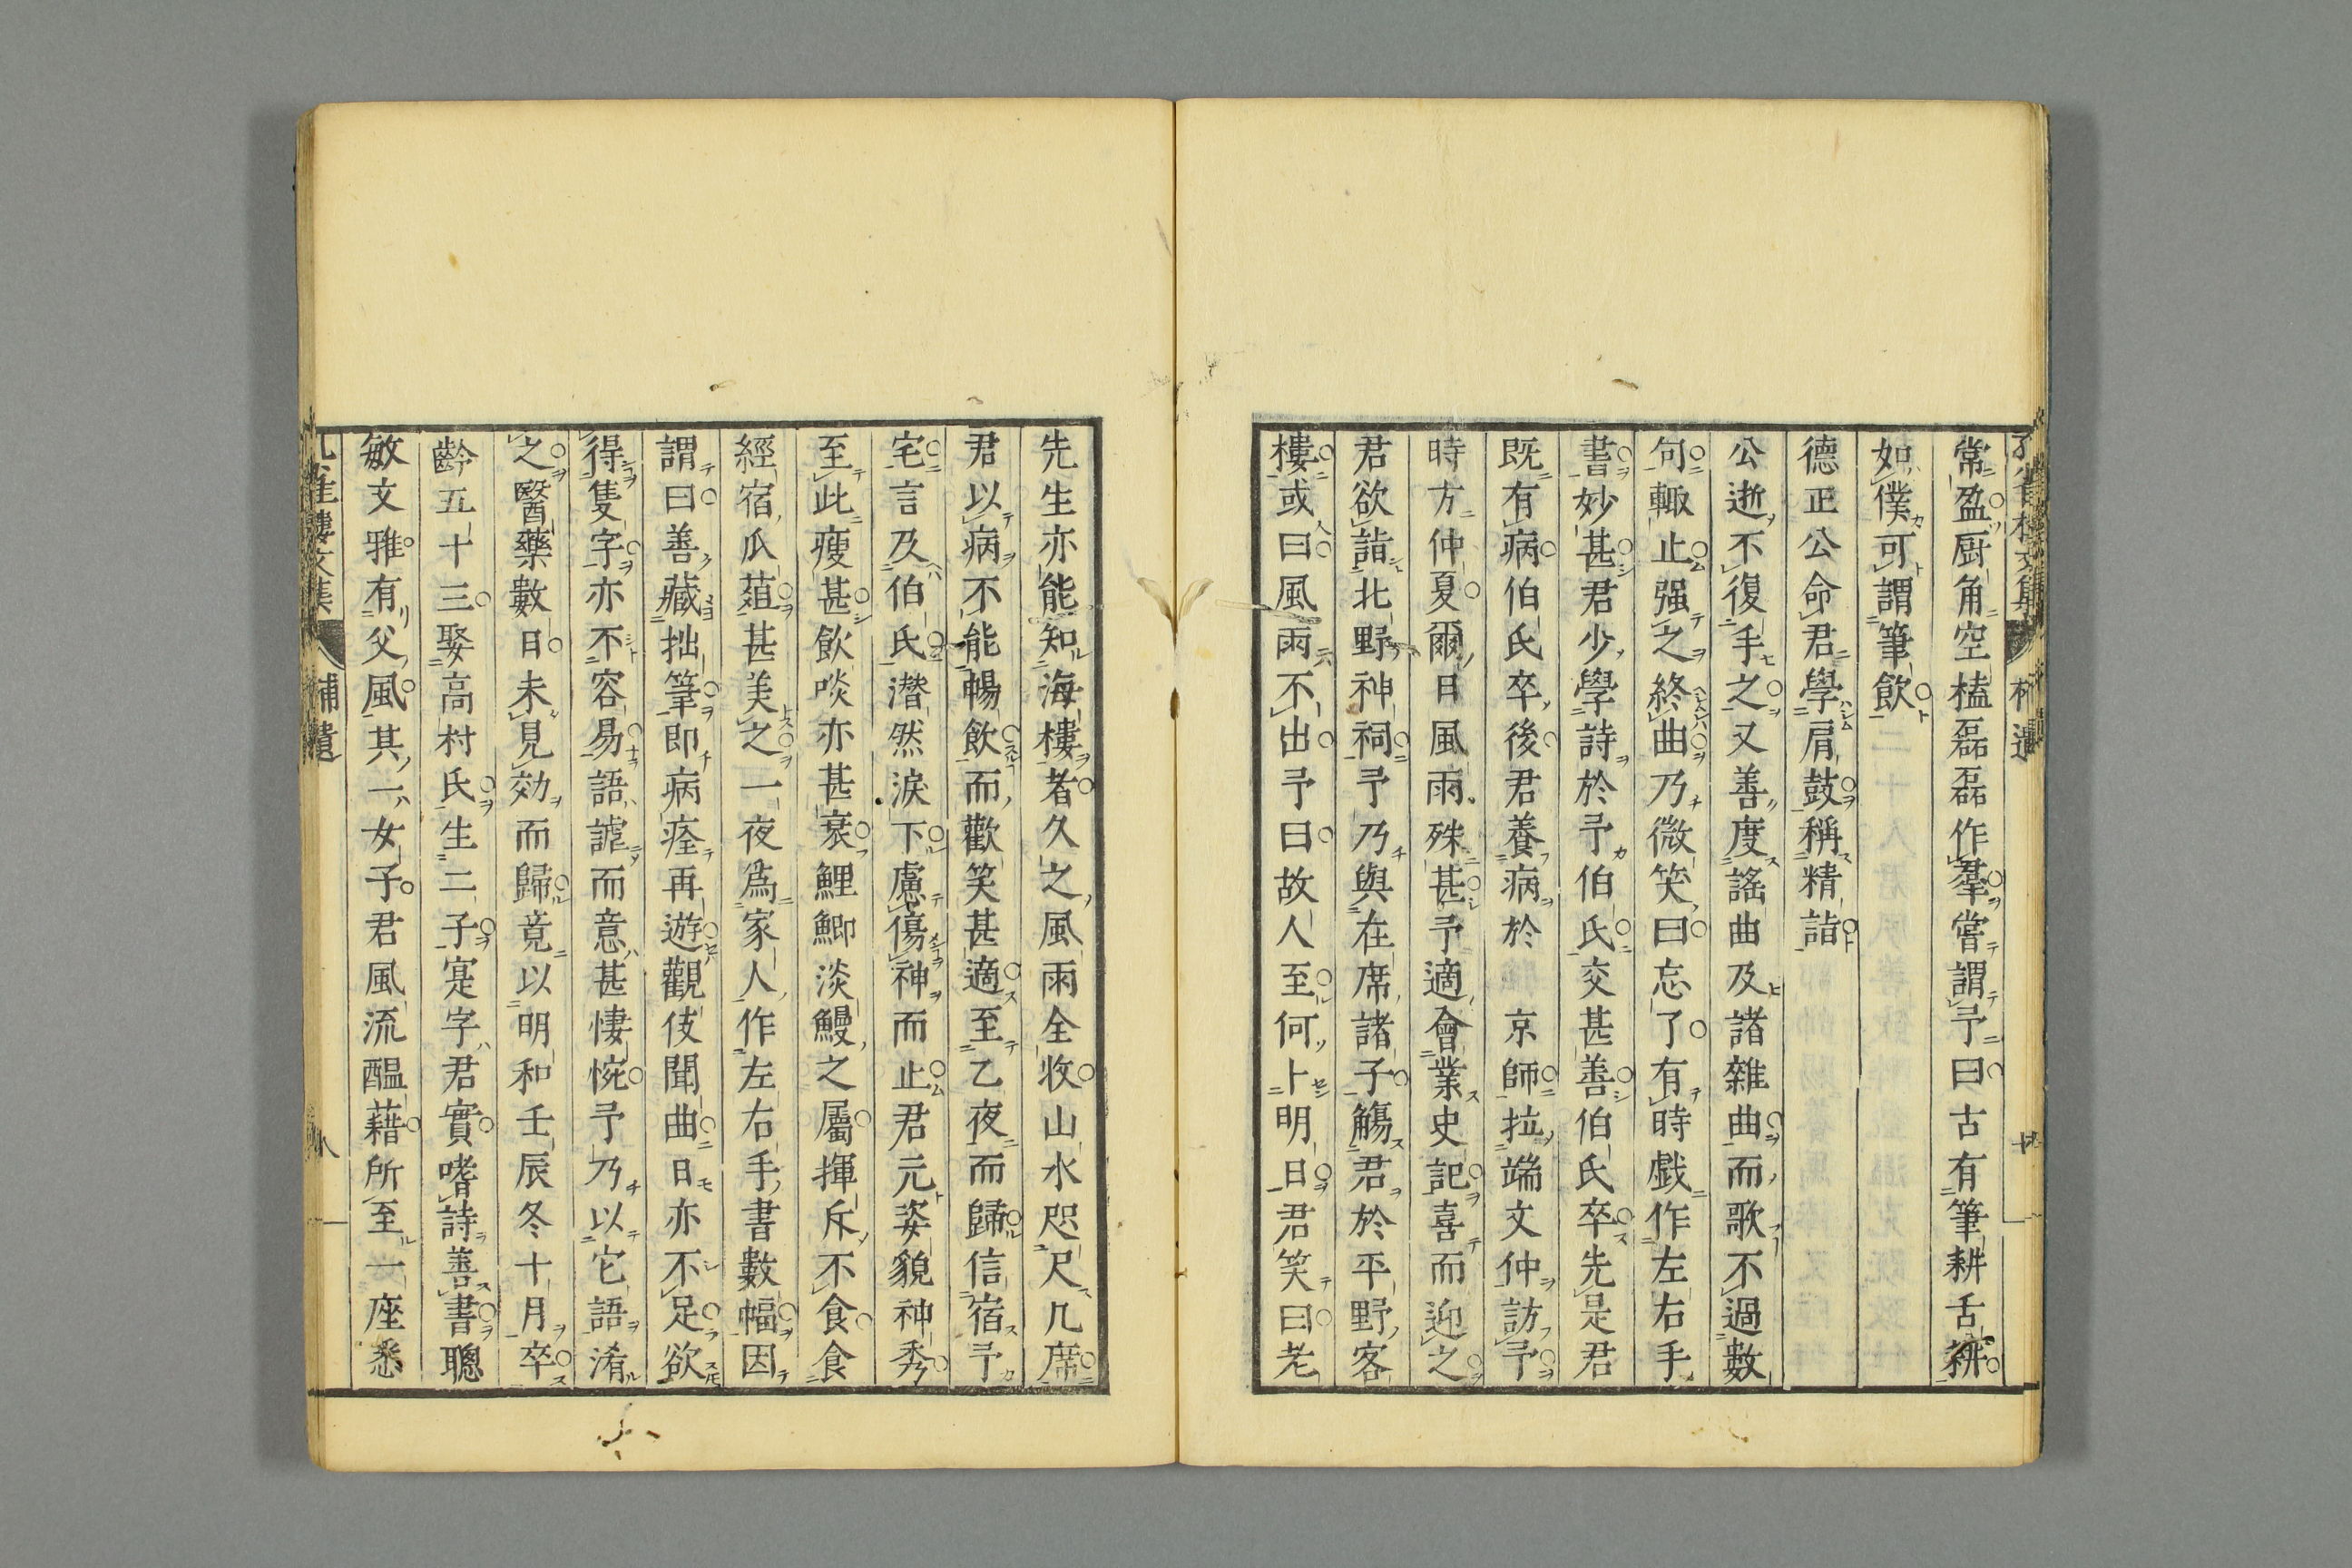 常盈厨角空榼磊磊作羣嘗謂予曰古有筆耕舌耕
如僕可謂筆飲
德正公命君學肩鼓稱精詣
公逝不復手之又善度謠曲及諸雜曲而歌不過數
句輙止强之終曲乃微笑曰忘了有時戯作左右手
書妙甚君少學詩於予伯氏交甚善伯氏卒先是君
既有病伯氏卒後君養病於京師拉端文仲訪予
時方仲夏爾日風雨殊甚予適會業史記喜而迎之
君欲詣北野神祠予乃與在席諸子觴君於平野客
樓或曰風雨不出予曰故人至何卜明日君笑曰老
先生亦能知海樓者久之風雨全收山水咫尺几席
君以病不能暢飲而歡笑甚適至乙夜而歸信宿予
宅言及伯氏潸然淚下慮傷神而止君元姿貌神秀
至此瘦甚飲啖亦甚衰鯉鯽淡鰻之屬揮斥不食食
經宿瓜葅甚美之一夜爲家人作左右手書數幅因
謂曰善藏拙筆即病痊再遊觀伎聞曲日亦不足欲
得隻字亦不容易語謔而意甚悽惋予乃以它語淆
之醫藥數日未見効而歸竟以明和壬辰冬十月卒
齡五十三娶高村氏生二子寔字君實嗜詩善書聰
敏文雅有父風其一女子君風流醞藉所至一座悉
孔雀樓文集 補遺 八